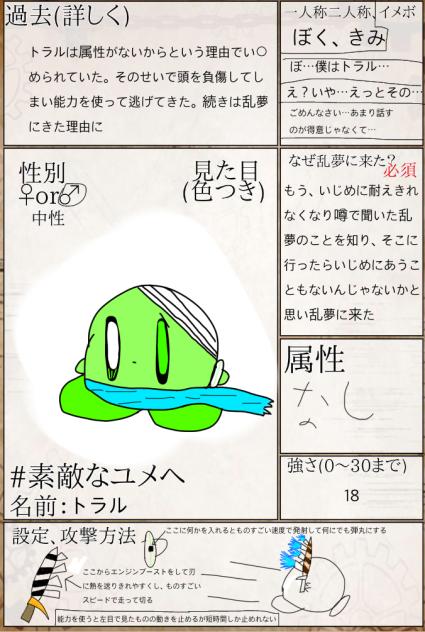 過去(詳しく)
トラルは属性がないからという理由でい○
められていた。そのせいで頭を負傷してし
まい能力を使って逃げてきた。続きは乱夢
にきた理由に
一人称二人称、イメボ
ぼく、きみ
ぼ…僕はトラル…
え？いや…えっとその…
ごめんなさい…あまり話す
のが得意じゃなくて…
性別
♀or♂
中性
見た目
(色つき)
なぜ乱夢に来た？
必須
もう、いじめに耐えきれ
なくなり噂で聞いた乱
夢のことを知り、そこに
行ったらいじめにあうこ
ともないんじゃないかと
思い乱夢に来た
属性
なし
強さ(0〜30まで)
18
#素敵なユメへ
名前:トラル
設定、攻撃方法
ここに何かを入れるとものすごい速度で発射して何にでも弾丸にする
ここからエンジンブーストをして刃
に熱を送りきれやすくし、ものすごい
スピードで走って切る
能力を使うと左目で見たものの動きを止めるが短時間しか止めれない